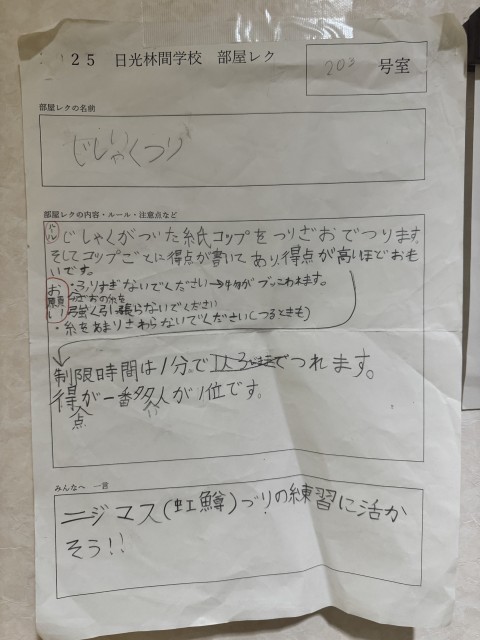 25 日光林間学校 部屋レク
203 号室
部屋レクの名前
じしゃくつり
部屋レクの内容・ルール・注意点など
じしゃくがついた紙コップをつりざおでつります。
そしてコップごとに得点が書いてあり、得点が高いほどおも
いです。
お願い
・ふりすぎないでください→物がぶつこわれます。
強く引っ張らないでください
・糸をあまりさわらないでください(つるときも)
制限時間は1分で1人でつれます。
得点が一番多い人が1位です。
みんなへ 一言
ニジマス(虹鱒)づりの練習に活か
そう!!